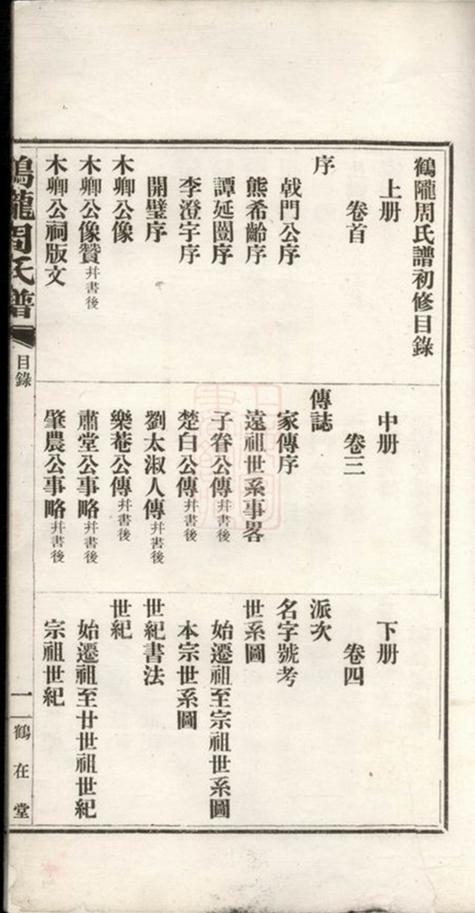 鶴隴周氏譜初修目錄
上册
卷首
序
戟門公序
熊希齡序
譚延闓序
李澄宇序
開璧序
木卿公像
木卿公像贊幷書後
木卿公祠版文
中册
卷三
傳誌
家傳序
遠祖世系事畧
子眷公傳幷書後
楚白公傳幷書後
劉太淑人傳幷書後
樂菴公傳幷書後
肅堂公事略幷書後
肇農公事略幷書後
下册
卷四
派次
名字號考
世系圖
始遷祖至宗祖世系圖
本宗世系圖
世紀書法
世紀
始遷祖至廿世祖世紀
宗祖世紀
鶴隴周氏譜
目錄
一
鶴在堂